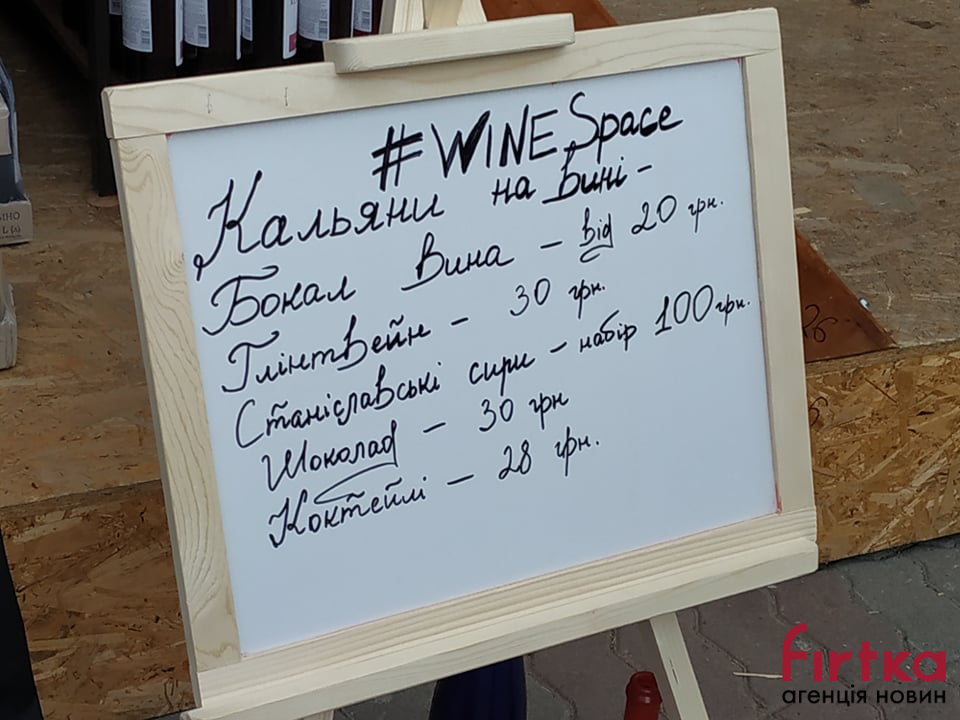 #WINE Space
Кальяни на вині -
Бокал вина - від 20 грн.
Глінтвейн - 30 грн.
Станіславські сири - набір 100 грн.
Шоколад - 30 грн
Коктейлі - 28 грн.
firtka
агенція новин